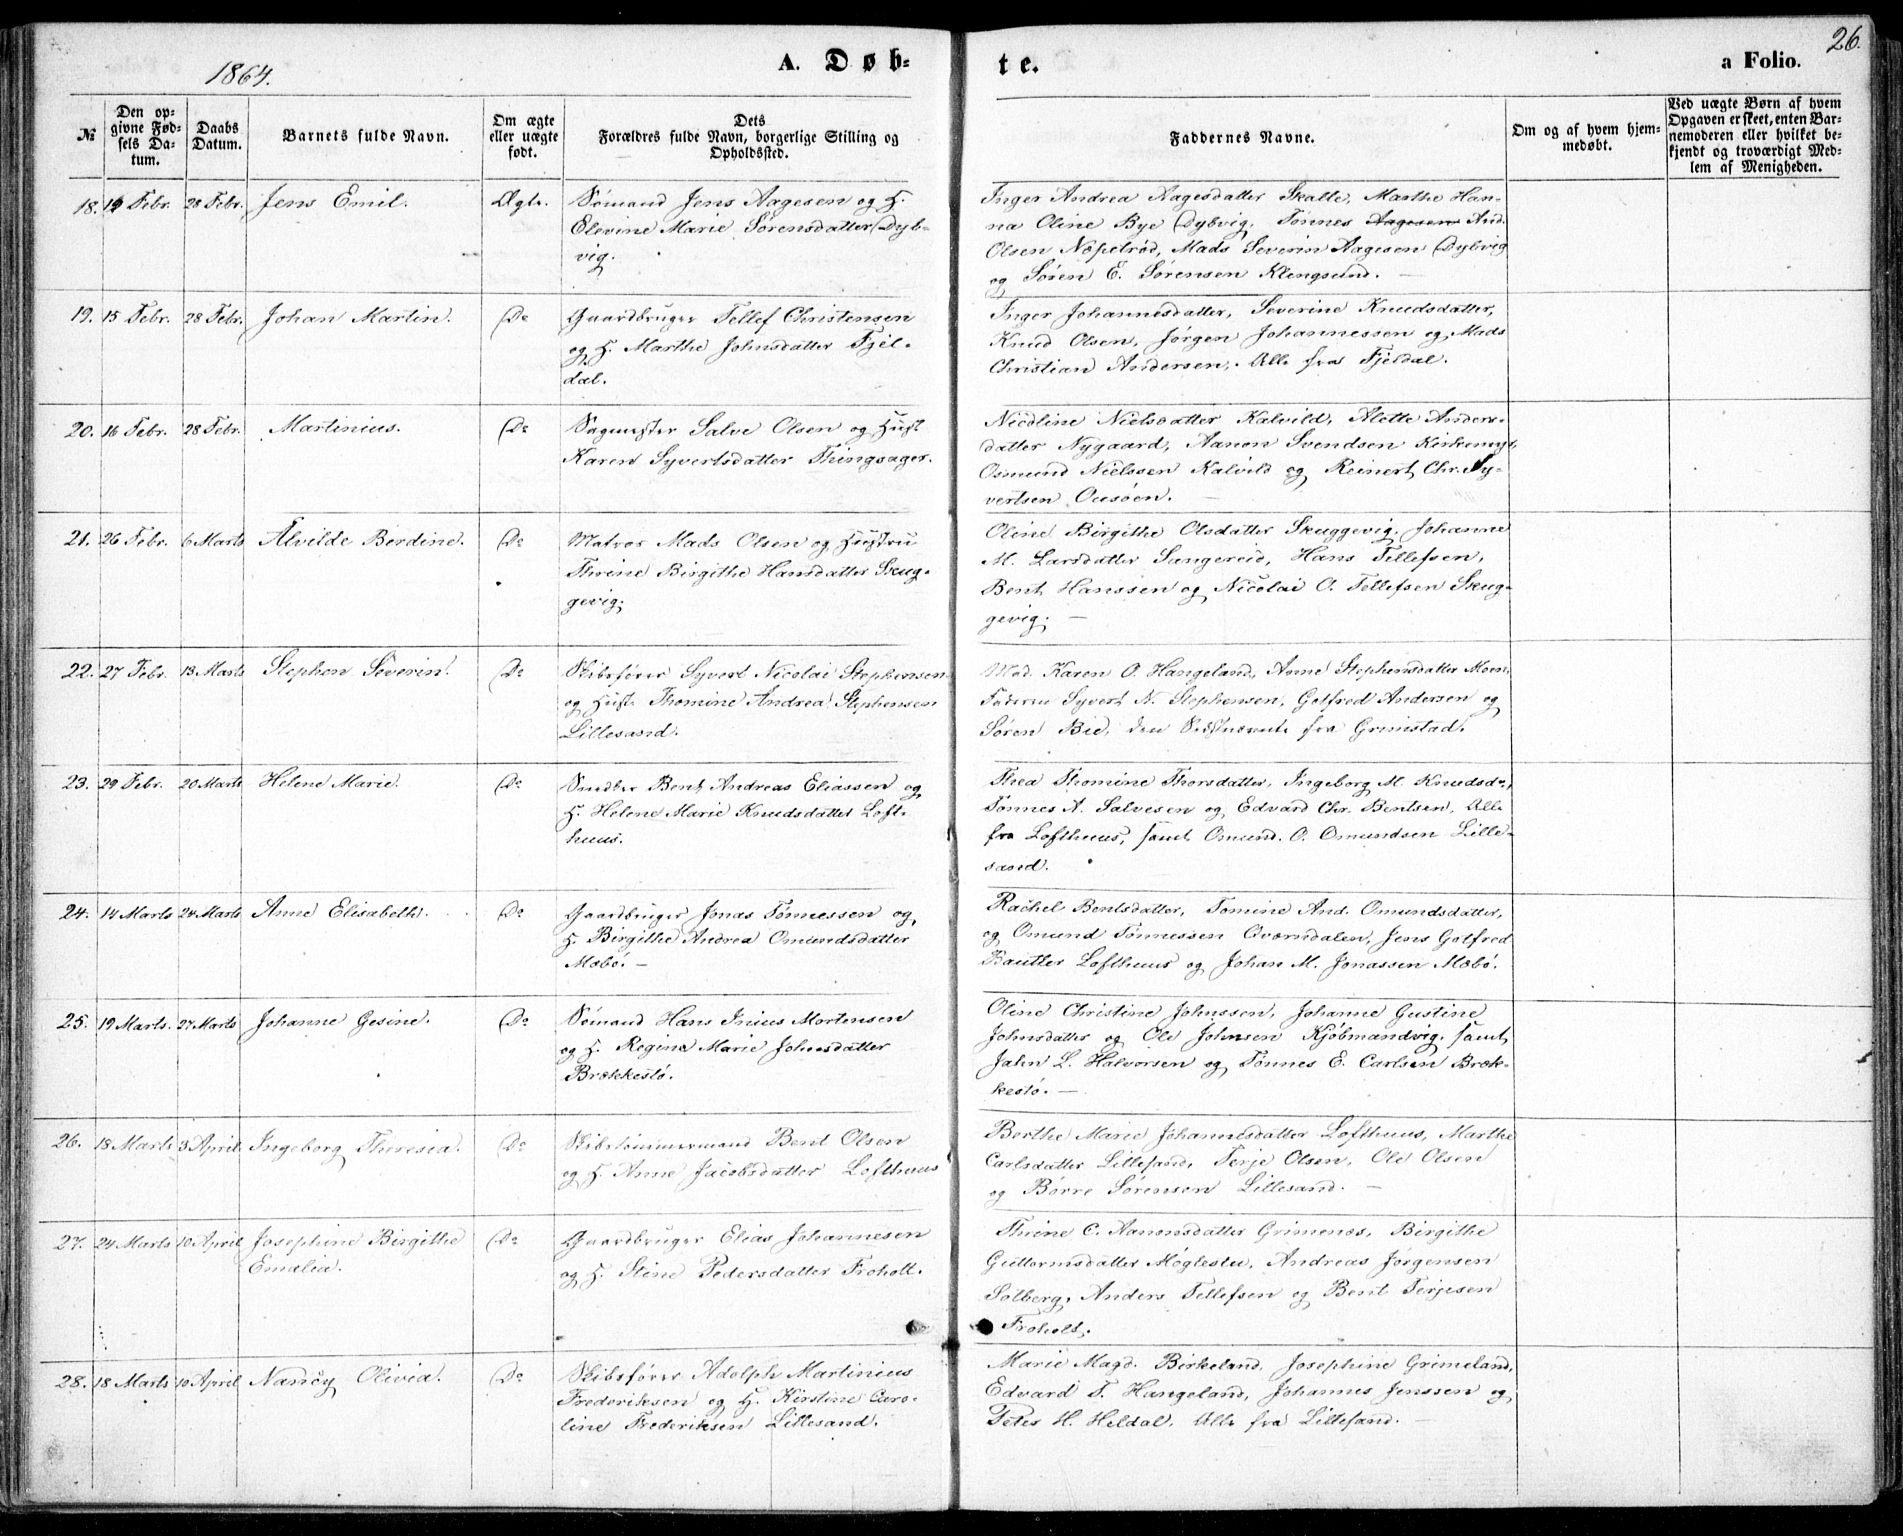 1864.
A. Døb-
te.
a Folio.
26.
№
Den op-
givne Fød-
sels Da-
tum.
Daabs
Datum.
Barnets fulde Navn.
Om ægte
eller uægte
født.
Dets
Forældres fulde Navn, borgerlige Stilling og
Opholdssted.
Faddernes Navne.
Om og af hvem hjem-
medøbt.
Ved uægte Børn af hvem
Opgaven er skeet, enten Bar-
nemoderen eller hvilket be-
kjendt og troværdigt Med-
lem af Menigheden.
18. Febr. 28 Febr. Jens Emil. Ægte.
Sømand Jens Aagesen og H.
Elevine Marie Sørensdatter Dyb-
vig.
Inger Andrea Aagesdatter Skalle, Marthe Han-
na Oline Bye Dybvig, Tønnes Aagesen And.
Olsen Næpetrød, Mads Severin Aagesen Dybvig
og Søren E. Sørensen Klengsund. —
19. 15 Febr. 28 Febr. Johan Martin. Do
Gaardbruger Tellef Christensen
og H. Marthe Johnsdatter Fjel-
dal.
Inger Johannesdatter, Severine Knudsdatter,
Knud Olsen, Jørgen Johannessen og Mads
Christian Andersen, Alle fra Fjeldal.
20. 16 Febr. 28 Febr. Martinius. Do
Sagmester Salve Olsen og Hust.
Karen Syvertsdatter Thingsager.
Nicoline Nielsdatter Kalvild, Alette Anders-
datter Nygaard, Aanon Svendsen Kirkemyr,
Osmund Nielssen Kalvild og Reinert Chr. Sy-
vertsen Ousøen. —
21. 26 Febr. 6 Marts Alvilde Berdine. Do
Matros Mads Olsen og Hustru
Thrine Birgithe Hansdatter Skug-
gevig.
Oline Birgithe Olsdatter Skuggevig, Johanne
M. Larsdatter Sangereid, Hans Tellefsen,
Bent Hanssen og Nicolai O. Tellefsen Skug-
gevig. —
22. 27 Febr. 13 Marts Stephen Severin. Do
Skibsfører Syvert Nicolai Stephensen
og Hust. Thomine Andrea Stephensen
Lillesand.
Mad. Karen O. Hangeland, Anne Stephensdatter Moen,
Faderen Syvert N. Stephensen, Gotfred Andersen og
Søren Bie, den Sidstnævnte fra Grimstad.
23. 29 Febr. 20 Marts Helene Marie. Do
Snedker Bent Andreas Eliassen og
H. Helene Marie Knudsdatter Loft-
huus.
Thea Thomine Thorsdatter, Ingeborg M. Knudsdr.,
Tønnes A. Salvesen og Edvard Chr. Bentsen, Alle
fra Lofthuus, samt Omund. O. Omundsen Lille-
sand.
24. 14 Marts 24 Marts Anne Elisabeth. Do
Gaardbruger Jonas Tønnessen og
H. Birgithe Andrea Omundsdatter
Mæbø. —
Rachel Bentsdatter, Tomine And. Omundsdatter,
og Omund Tønnessen Qværndalen, Jens Gotfred
Bautler Lofthuus og Johan M. Jonassen Mæbø.
25. 19 Marts. 27 Marts Johanne Gesine. Do
Sømand Hans Inius Mortensen
og H. Regine Marie Johnsdatter
Brækkestø.
Oline Christine Johnssen, Johanne Gustine
Johnsdatter og Ole Johnsen Kjøbmandvig, samt
Jahn L. Halvorsen og Tønnes E. Carlsen Bræk-
kestø. —
26. 18 Marts 3 April Ingeborg Theresia. Do
Skibstømmermand Bent Olsen
og H. Anne Jacobsdatter Lofthuus
Berthe Marie Johannesdatter Lofthuus, Marthe
Carlsdatter Lillesand, Terje Olsen, Ole Olsen
og Børre Sørensen Lillesand. —
27. 24 Marts 10 April Josephine Birgithe
Emalia. Do
Gaardbruger Elias Johannesen
og H. Stine Pedersdatter Froholt.
Thrine C. Aanonsdatter Grimenes, Birgithe
Guttormsdatter Møglestu, Andreas Jørgensen
Solberg, Anders Tellefsen og Bent Terjesen
Froholt.
28. 18 Marts 10 April Nancy Olivia. Do
Skibsfører Adolph Martinius
Frederiksen og H. Kirstine Caro-
line Frederiksen Lillesand.
Marie Magd. Birkeland, Josephine Grimeland,
Edvard T. Hangeland, Johannes Jenssen og
Peter H. Heldal, Alle fra Lillesand.